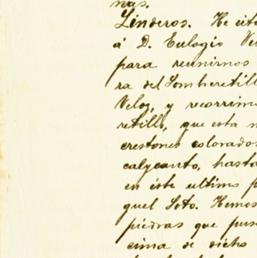 nas.
Linderos. He cita
á D. Eulogio Ve
para reunirnos
ra del Sombretill
Veloz, y recorrim
retillo, que esta m
crestones colorados
calycanto, hasta
en éste ultimo p
guel Soto. Hemos
piedras que pus
cima de dicho